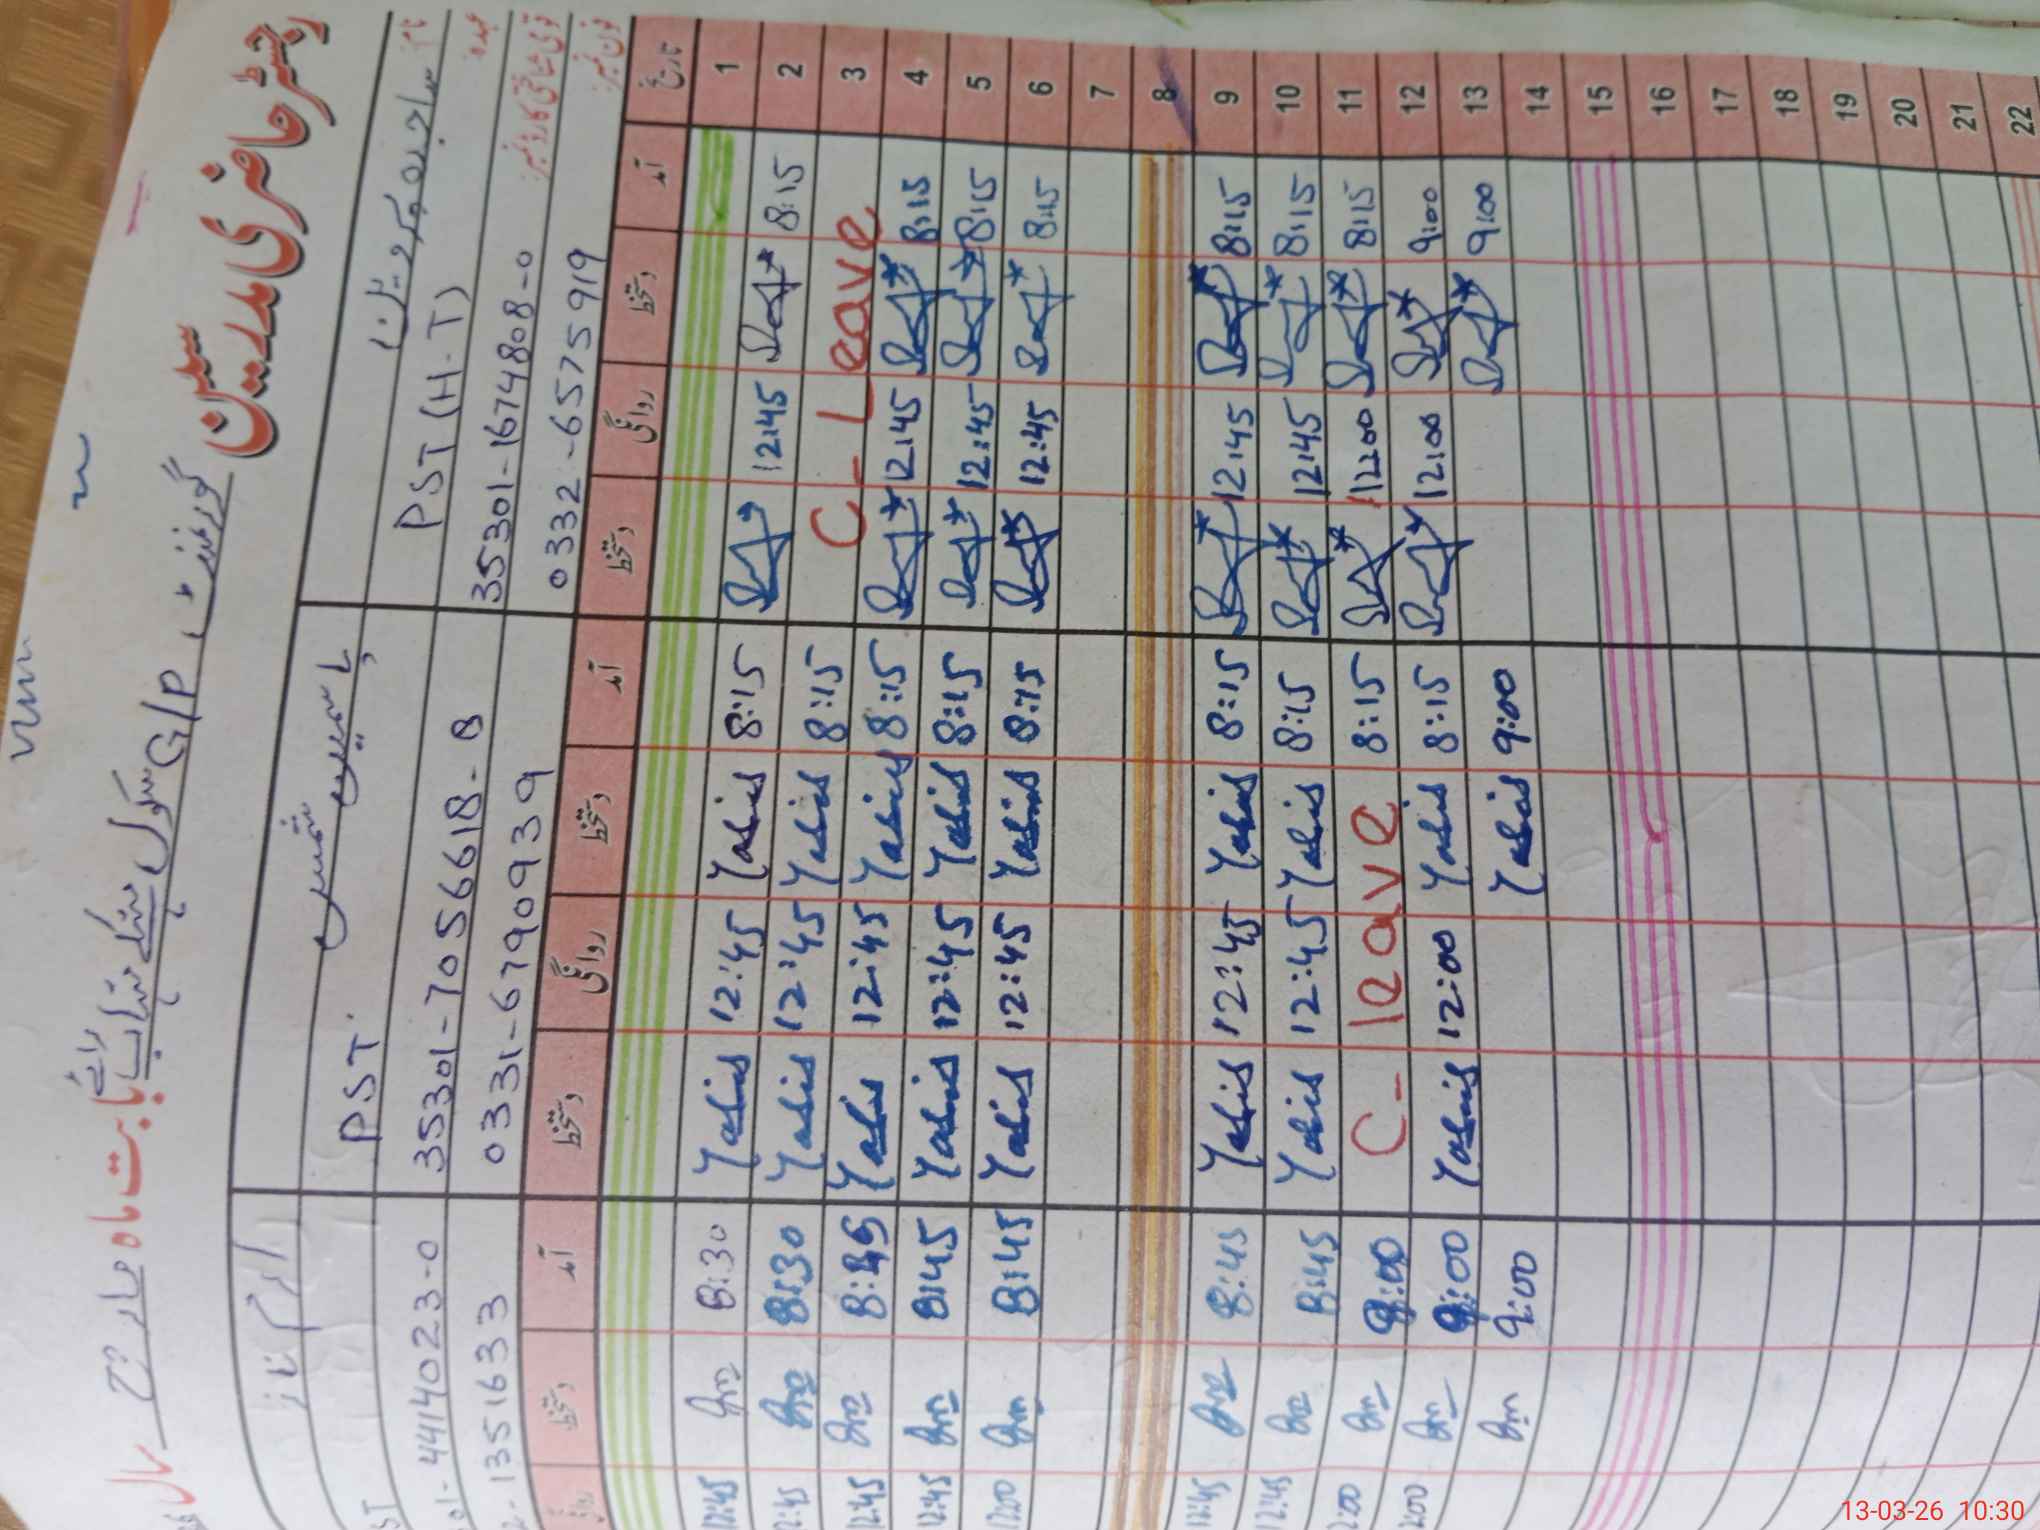 رجسٹر حاضری مدرسین
گورنمنٹ G/P سکول
بابت ماہ مارچ سال
نام:
عہدہ:
PST (H-T)
قومی شناختی کارڈ نمبر:
35301-1674808-0
فون نمبر:
0332-6575919
یاسمین شمس
PST
35301-7056618-8
0331-6790939
ارم ناز
ST
01-4414023-0
2-1351633
تاریخ آمد دستخط روانگی دستخط آمد دستخط روانگی دستخط آمد دستخط روانگی
1
2 8:15 12:45 8:15 Yasmin 12:45 Yasmin 8:30 12:45
3 C-Leave 8:15 Yasmin 12:45 Yasmin 8:30 2:45
4 8:15 12:45 8:15 Yasmin 12:45 Yasmin 8:45 12:45
5 8:15 12:45 8:15 Yasmin 12:45 Yasmin 8:45 12:45
6 8:15 12:45 8:15 Yasmin 12:45 Yasmin 8:45 12:00
7
8
9 8:15 12:45 8:15 Yasmin 12:45 Yasmin 8:45 12:45
10 8:15 12:45 8:15 Yasmin 12:45 Yasmin 8:45 12:45
11 8:15 12:00 8:15 C-leave 9:00 2:00
12 9:00 12:00 8:15 Yasmin 12:00 Yasmin 9:00 2:00
13 9:00 9:00 Yasmin 9:00
14
15
16
17
18
19
20
21
22
13-03-26 10:30